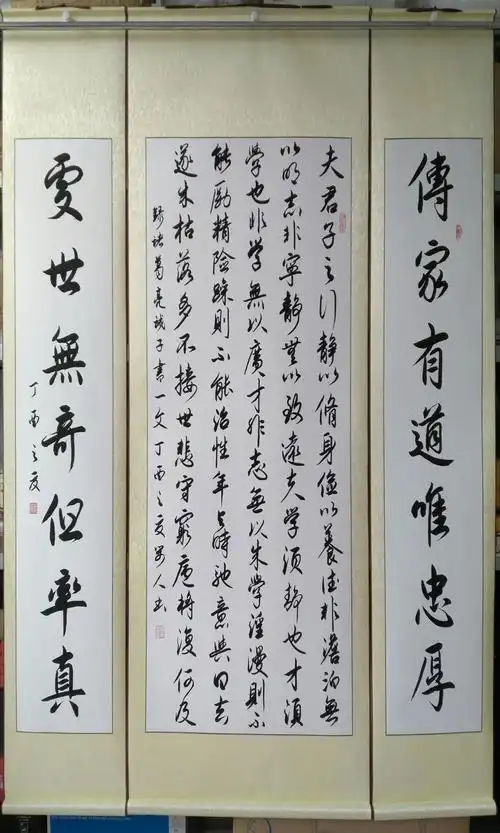 傳家有道唯忠厚
夫君子之行靜以脩身儉以養德非澹泊無
以明志非寧靜無以致遠夫学須静也才須
學也非学無以廣才非志無以成學淫漫則不
能励精險躁則不能治性年与時馳意與日去
遂成枯落多不接世悲守窮廬將復何及
錄諸葛亮誡子書一文丁酉之夏人书
處世無奇但率真
丁酉之夏